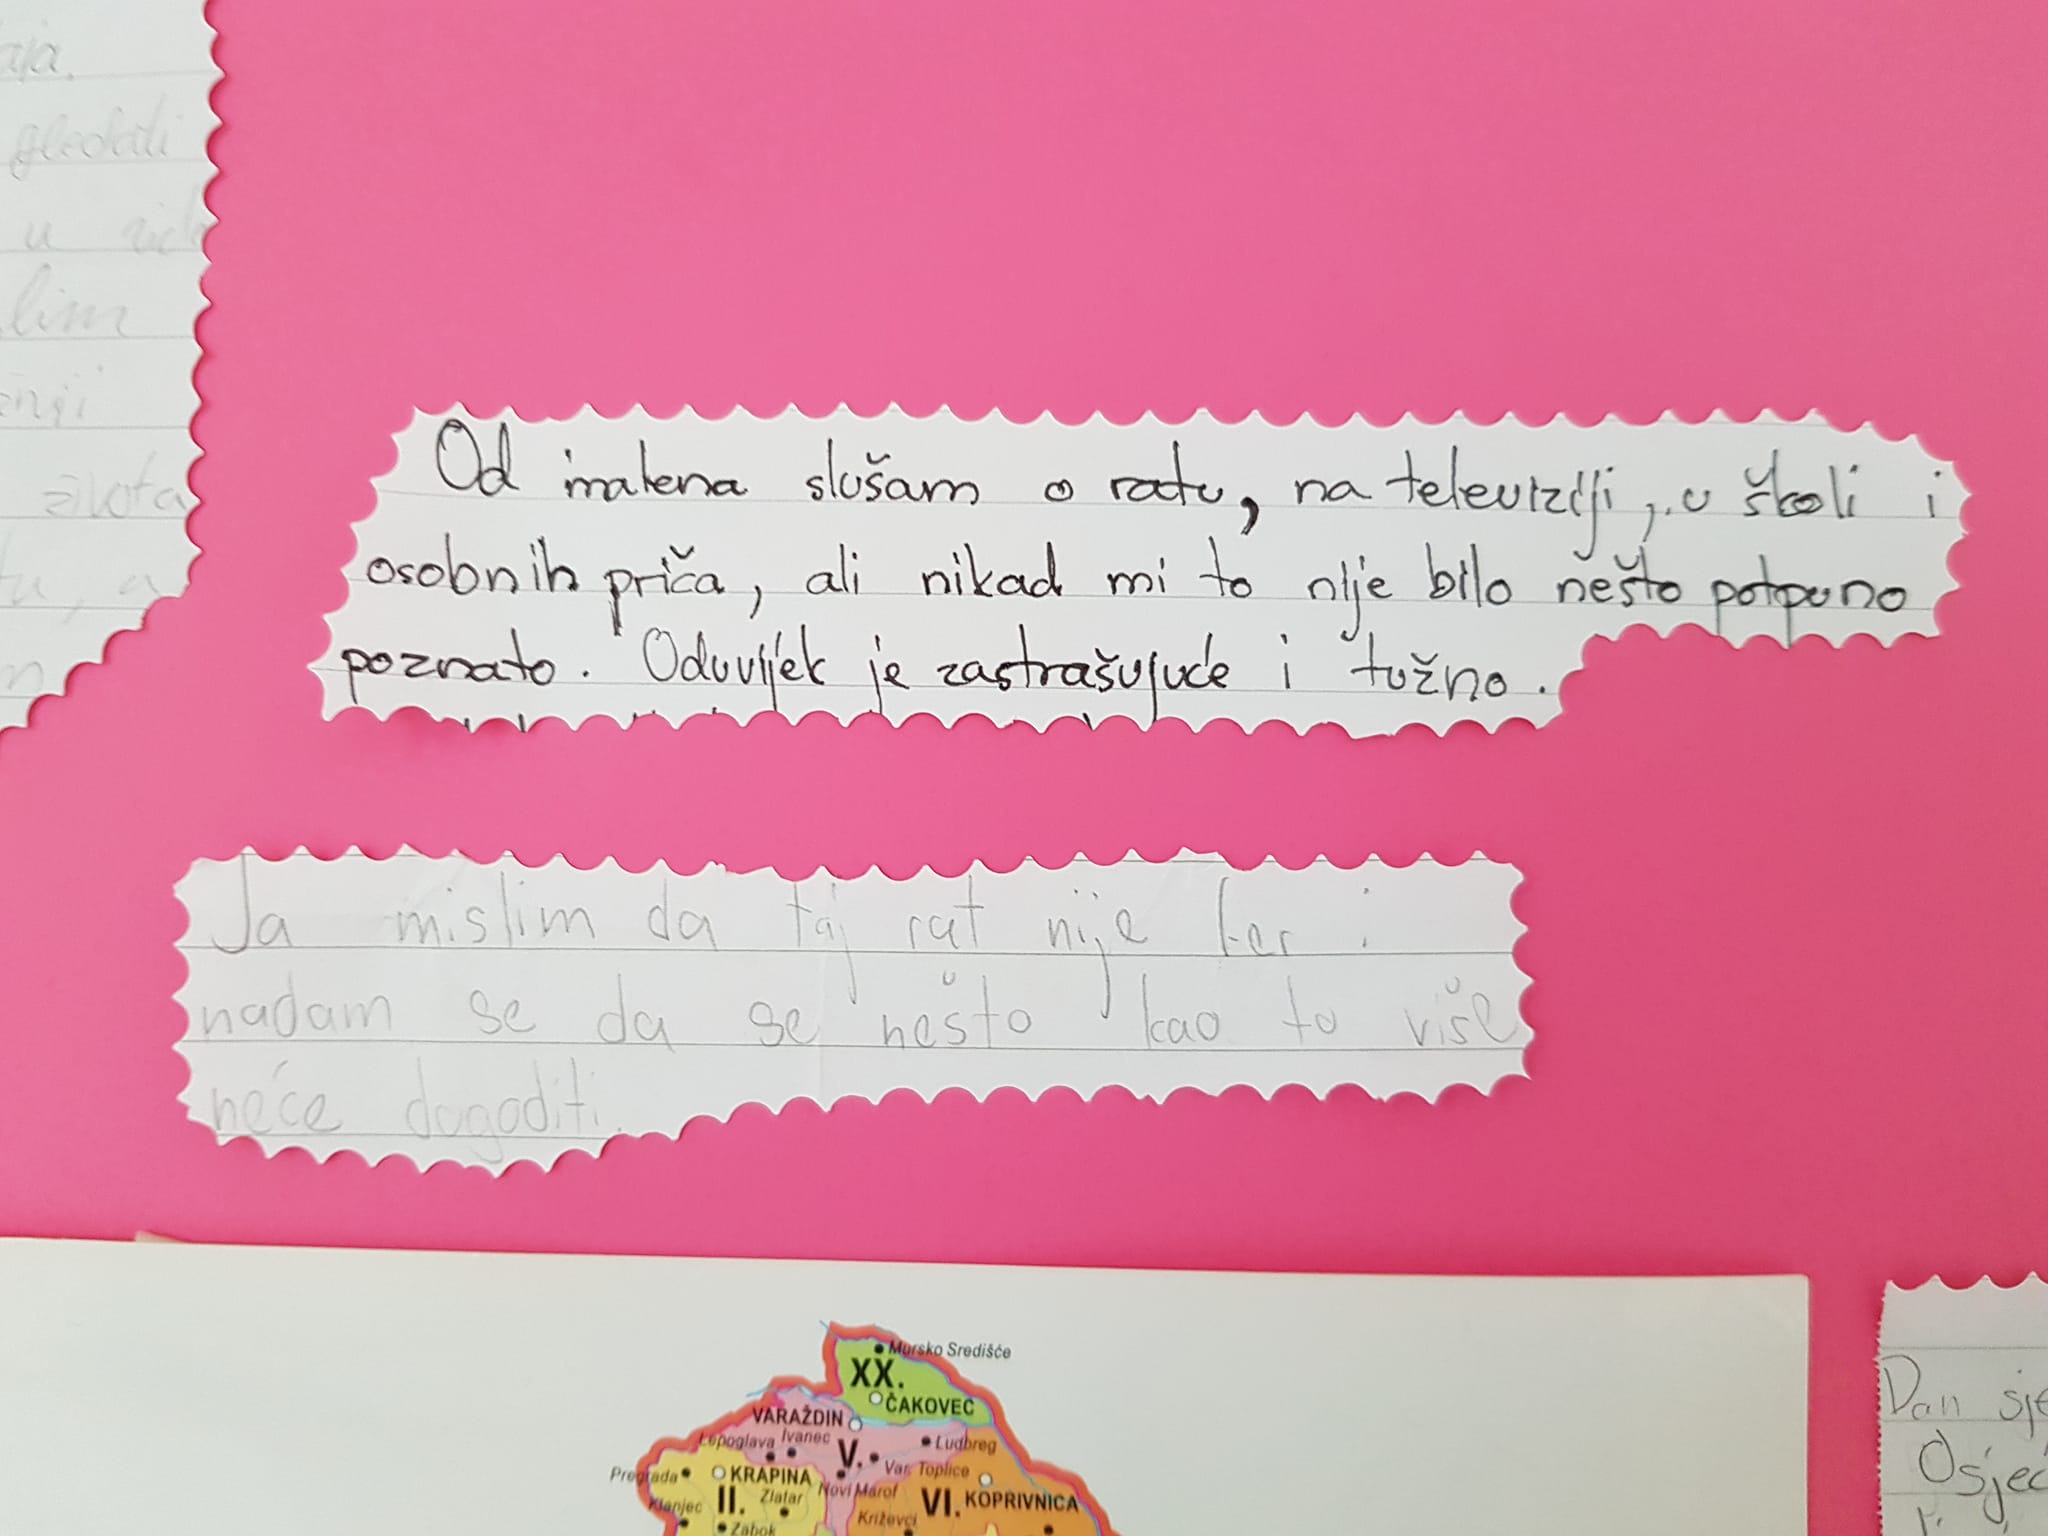 gledali
u
života
Od malena slušam o ratu, na televiziji, u školi i
osobnih priča, ali nikad mi to nije bilo nešto potpuno
poznato. Oduvijek je zastrašujuće i tužno.
Ja mislim da taj rat nije fer i
nadam se da se nešto kao to više
neće dogoditi.
Mursko Središće
XX.
ČAKOVEC
VARAŽDIN
Lepoglava Ivanec
V.
Ludbreg
Var. Toplice
Pregrada
KRAPINA
Novi Marof
Klanjec
II.
Zlatar
VI. KOPRIVNICA
Križevci
Zabok
Dan sje
Osjeć